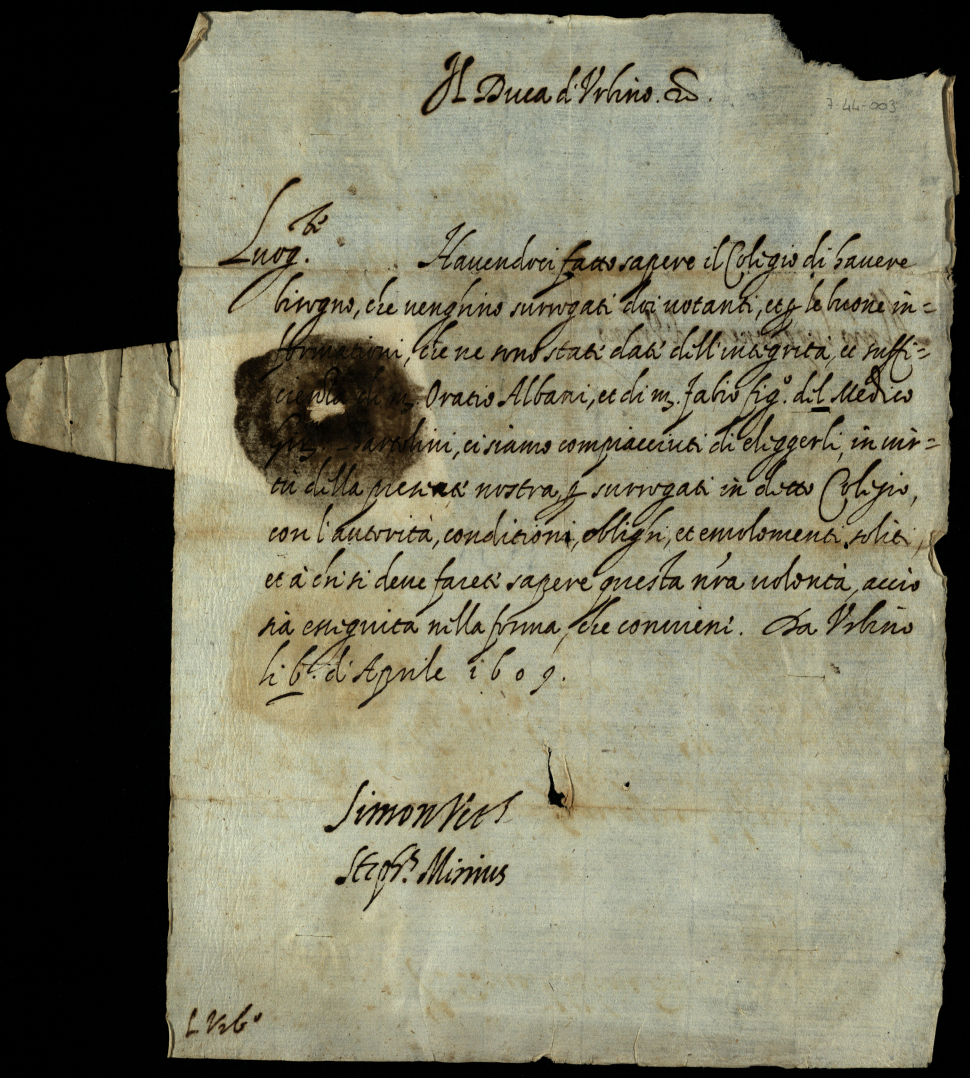 Il Duca d'Urbino. &c.
7-44-003
Luog.te Havendoci fatto sapere il Colegio di havere
bisogno, che venghino surrogati doi votanti, et p le buone in=
formationi, che ne sono stati dati dell'integrità, et suffi=
cienza di m. Oratio Albani, et di m. fabio fig.o del Medico
Bartolini, ci siamo compiacciuti di eliggerli, in vir=
tù della presente nostra, p surrogati in detto Colegio,
con l'autorità, conditioni, oblighi, et emolomenti soliti,
et à chi si deve fareti sapere questa n'ra volontà, acciò
sia esseguita nella forma, che convieni. Da Urbino
li 6 d'Aprile 1609.
Simon
Steph.s
L Urb.o